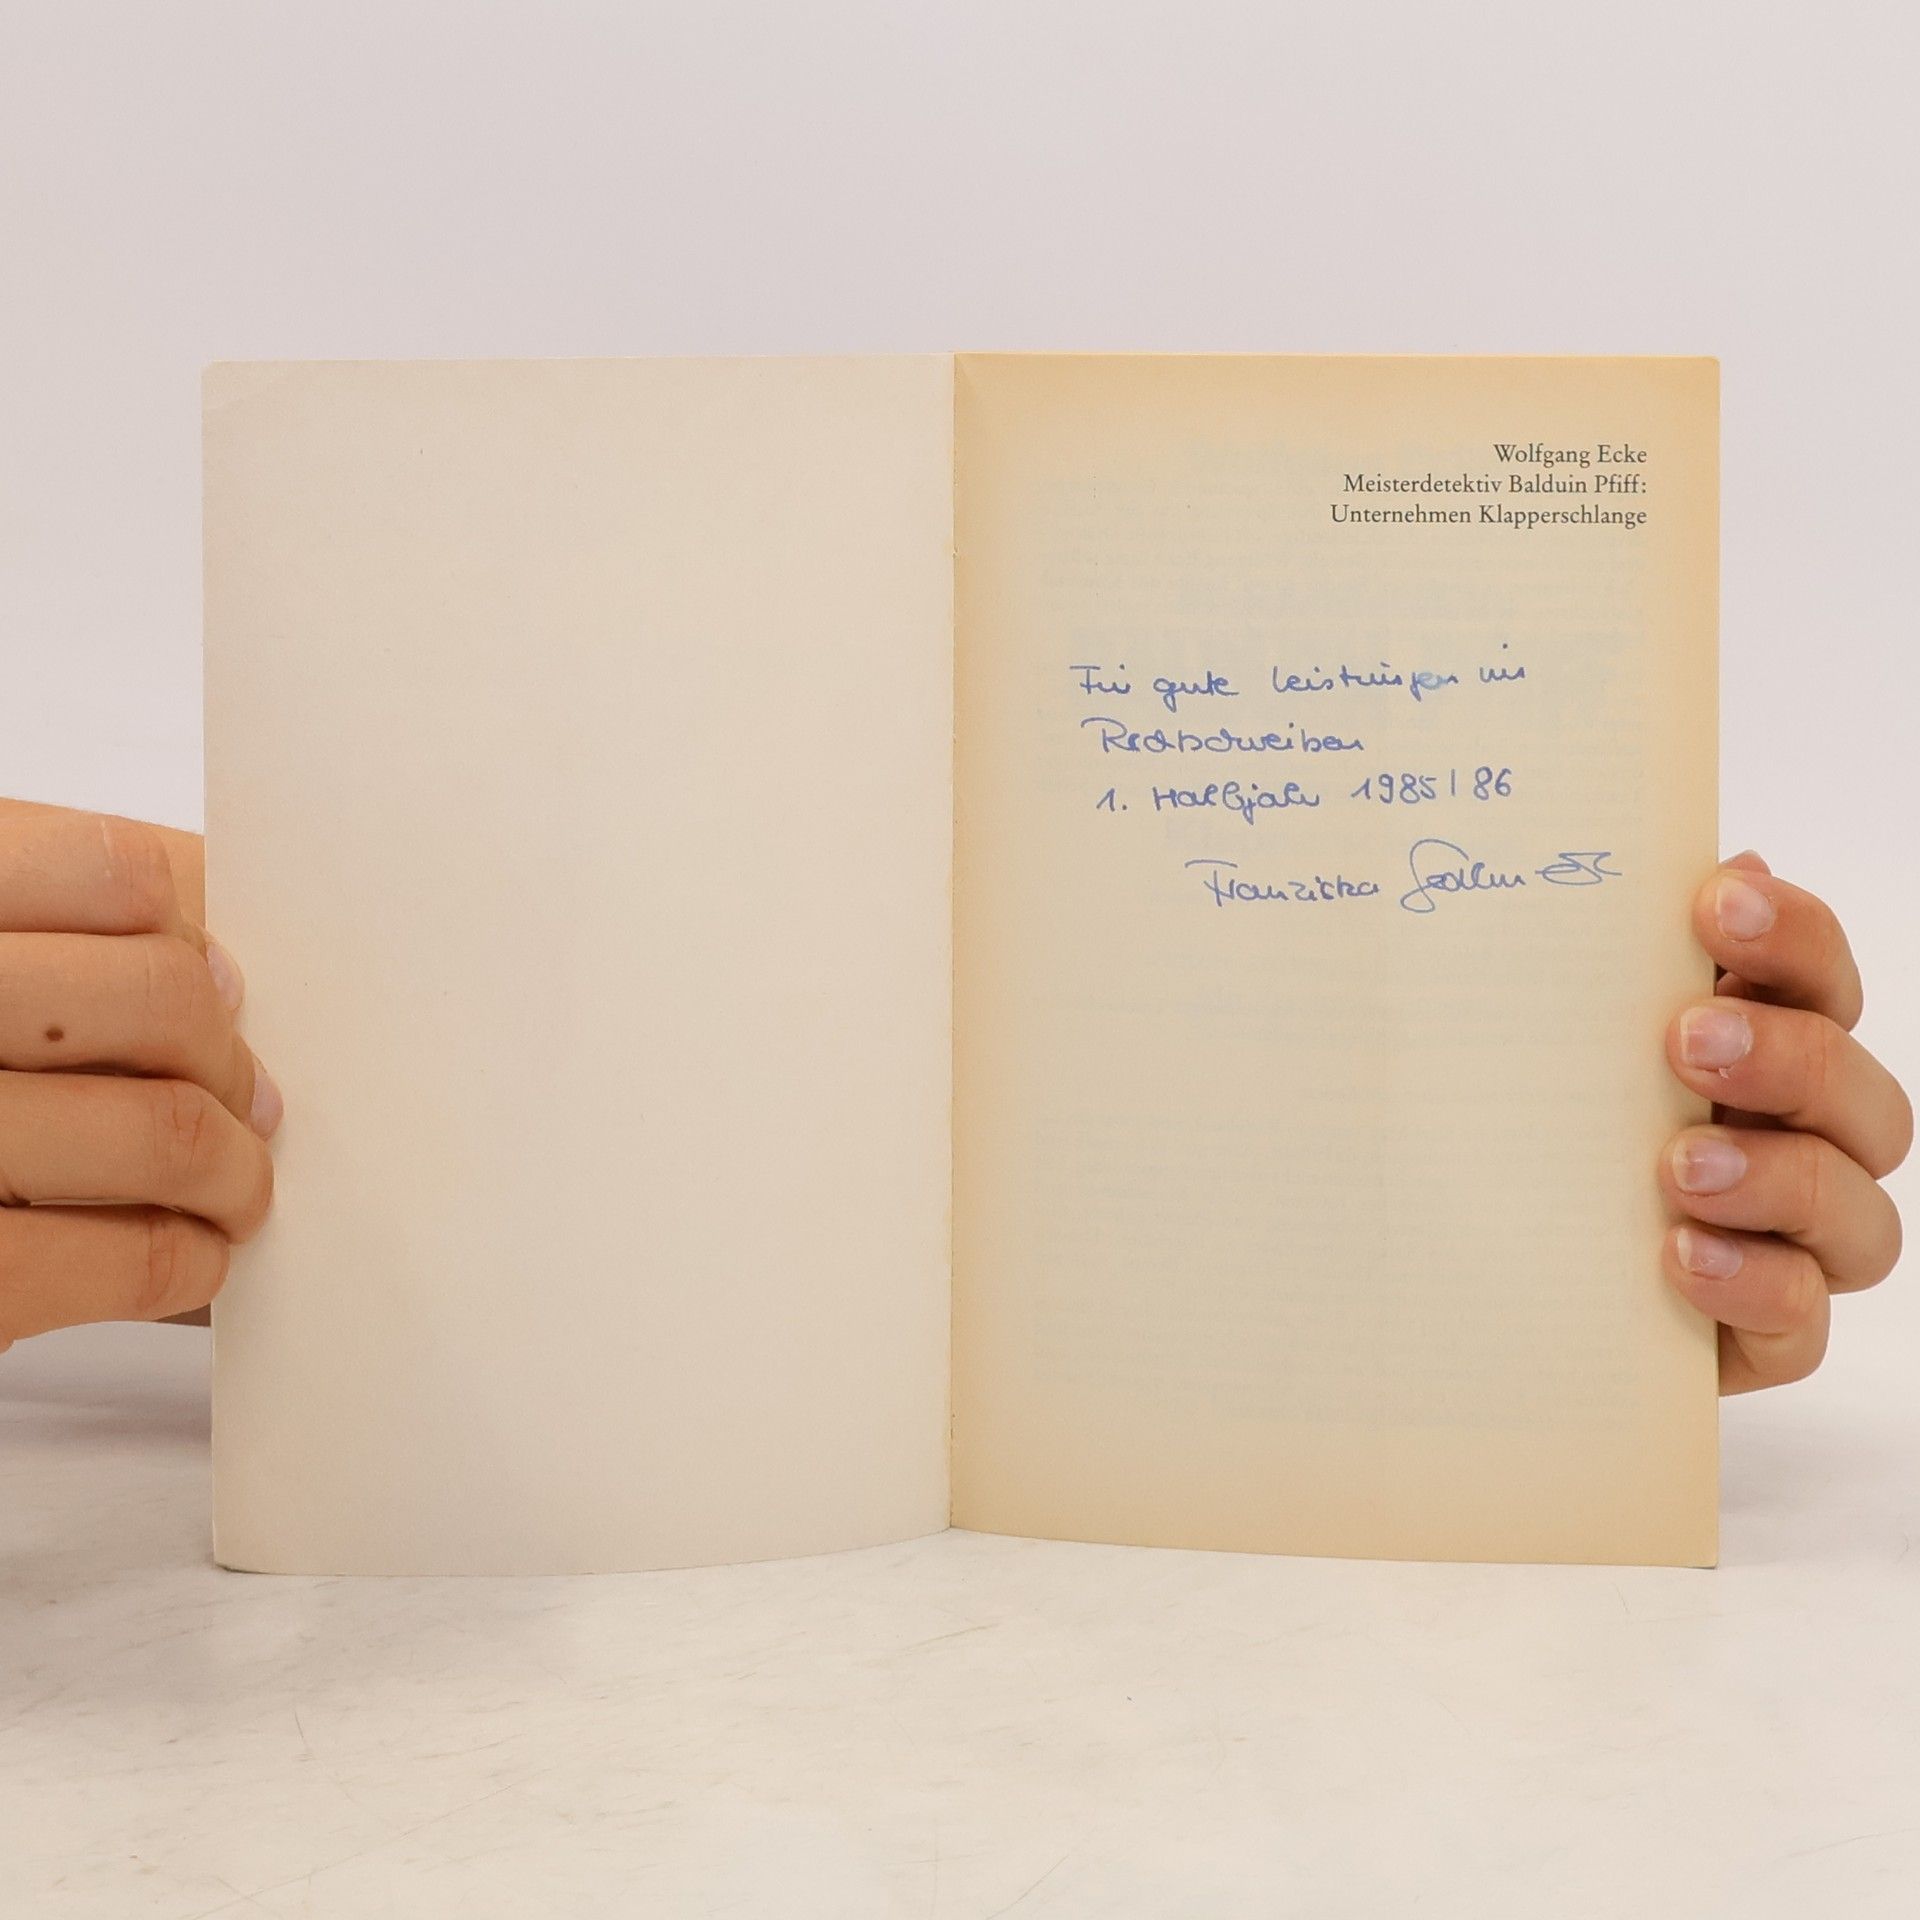 Wolfgang Ecke
Meisterdetektiv Balduin Pfiff:
Unternehmen Klapperschlange
Für gute Leistungen im
Rechtschreiben
1. Halbjahr 1985/86
Franziska